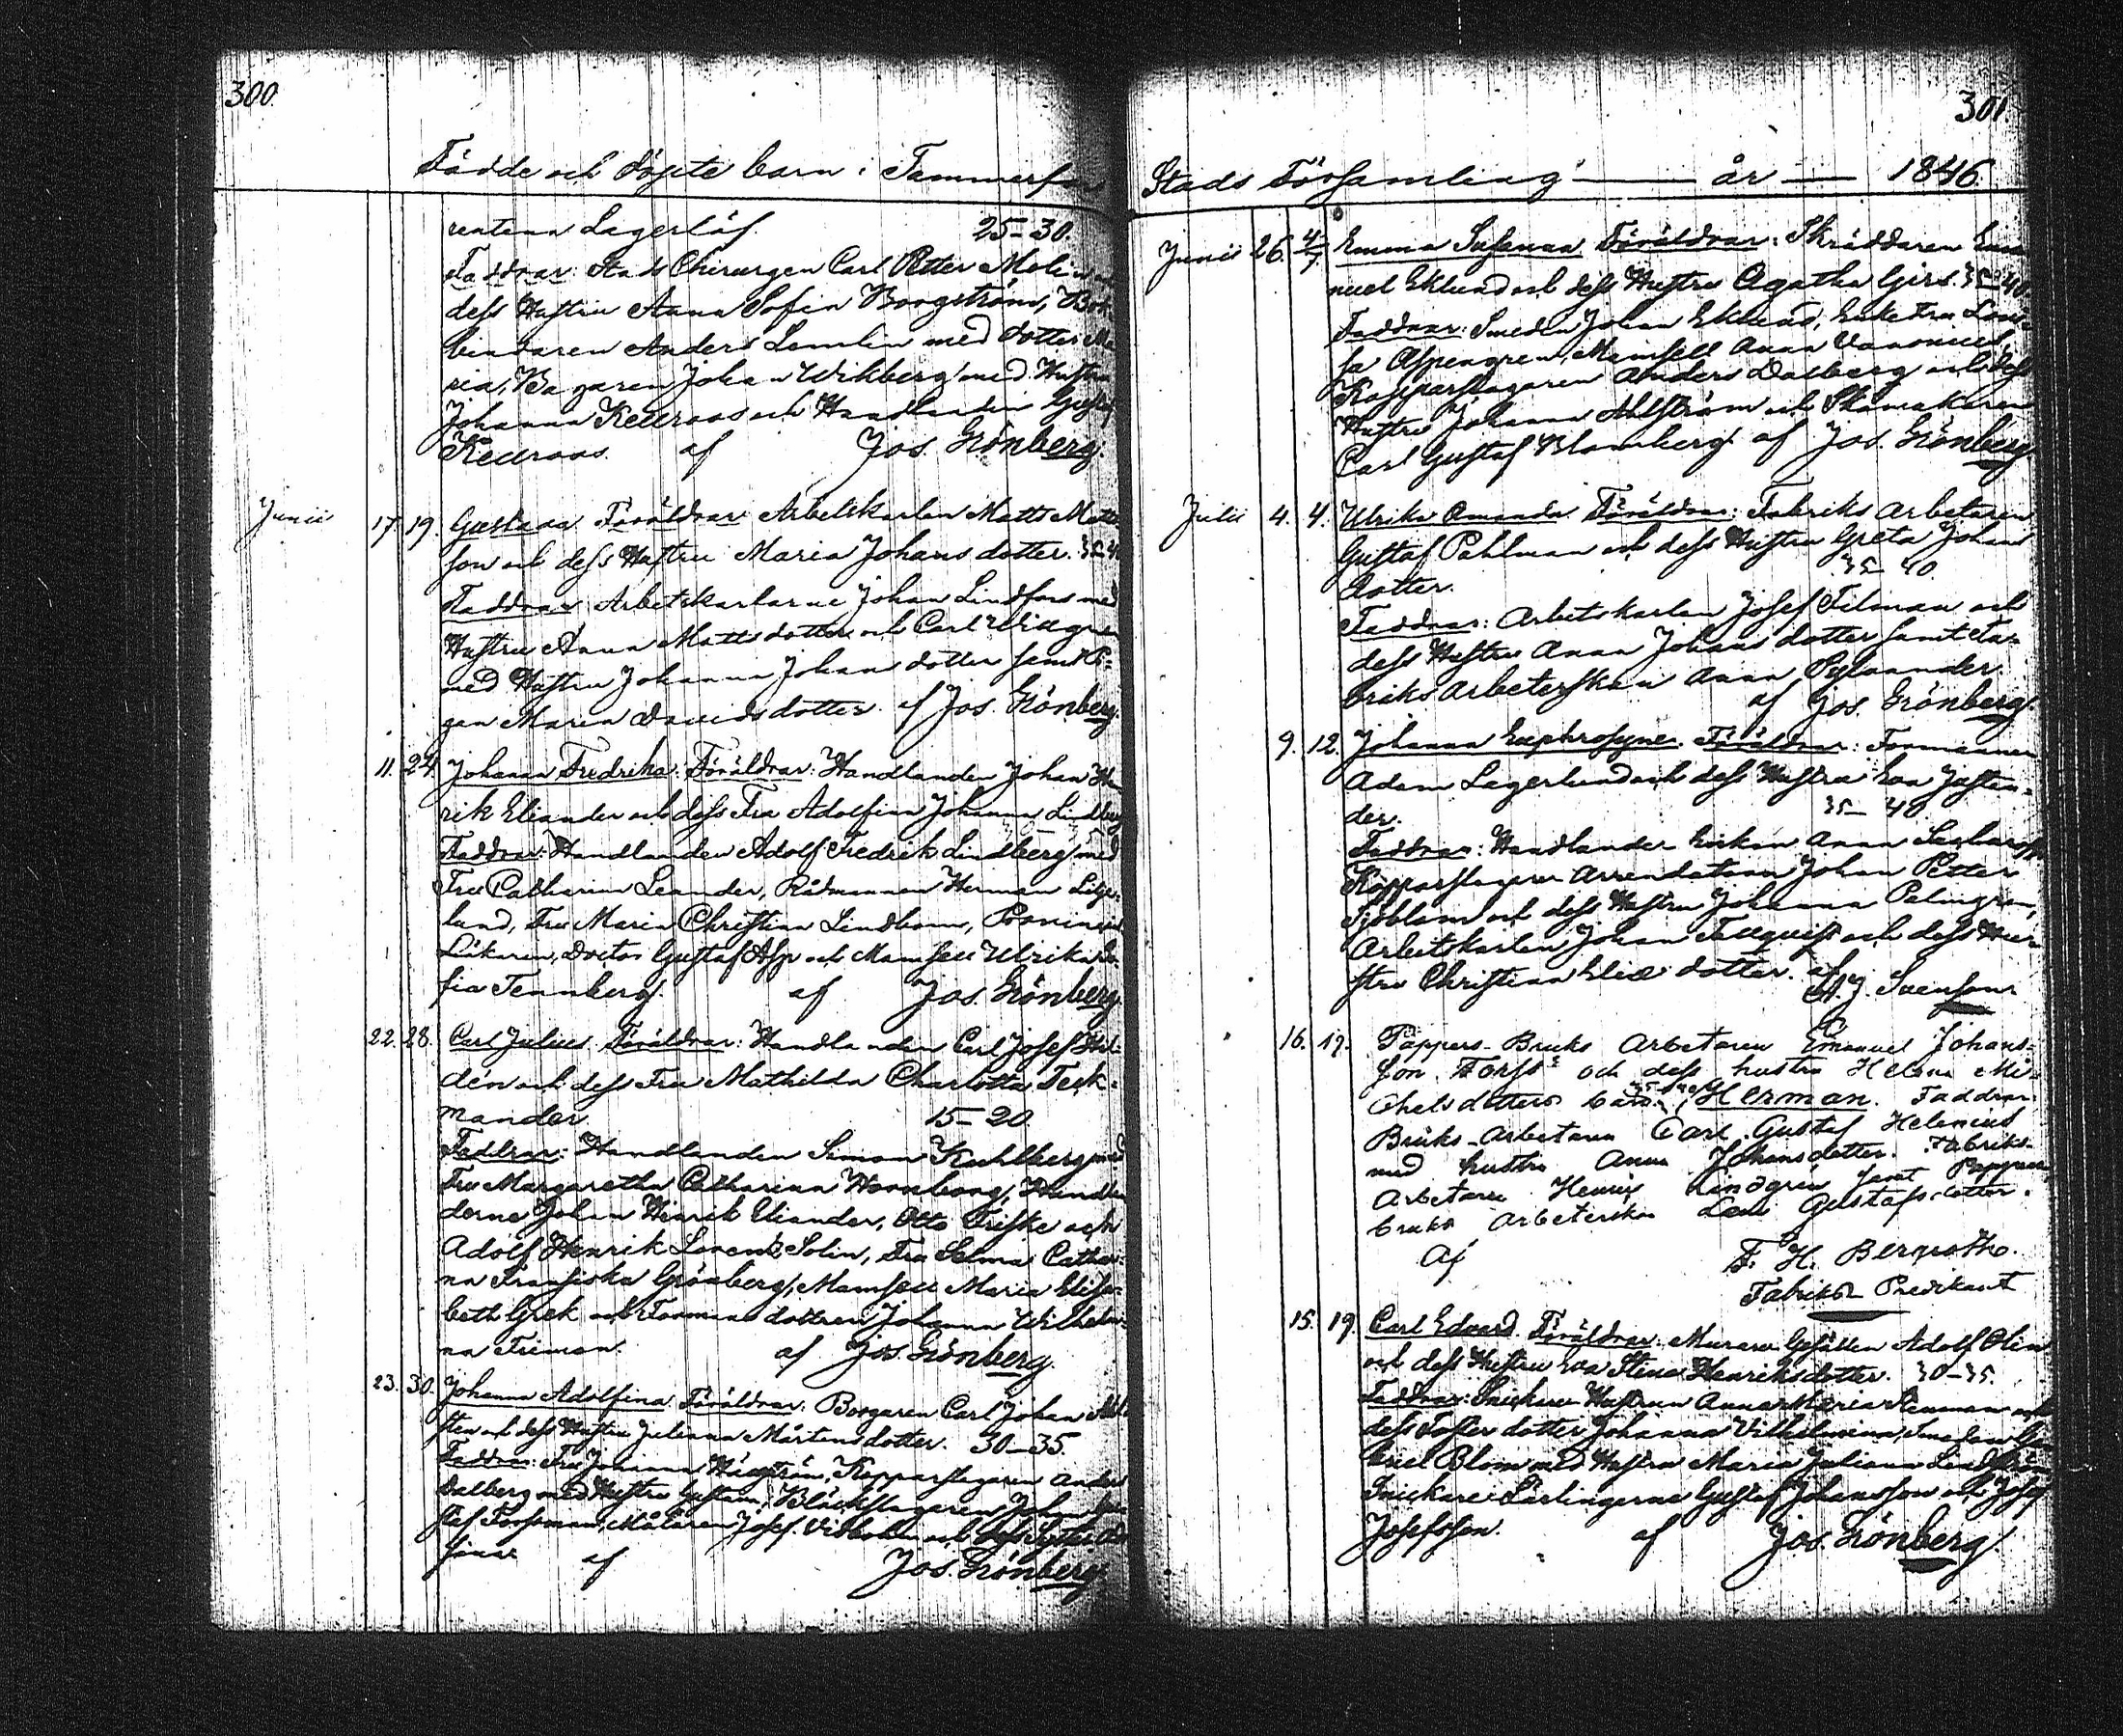 300.
Födde och döpte barn i Tammerfors
rentina Lagerlöf. 25-30.
Faddrar: Stads Chirurgen Carl Petter Molin
dess Hustru Anna Sofia Borgström, Bok
bindaren Anders Lemlin med dotter Ma
ria, Bagaren Johan Wikberg med Hustru
Johanna Keuroos och Handlanden Gustaf
Keuroos. af Jos. Grönberg.
Junii 17. 19. Gustava. Föräldrar: Arbetskarlen Matts Matts
son och dess Hustru Maria Johans dotter. 35-40
Faddrar: Arbetskarlarne Johan Lindfors med
Hustru Anna Matts dotter och Carl
med Hustru Johanna Johans dotter samt Pi=
gan Maria Davids dotter. af Jos. Grönberg.
11. 24. Johanna Fredrika. Föräldrar: Handlanden Johan Hen
rik Eliander och dess Fru Adolfina Johanna Lindberg
Faddrar: Handlanden Adolf Fredrik Lindberg med
Fru Catharina Leander, Rådmannen Herman Lilje=
lund, Fru Maria Christina Lindbom, Provincial
Läkaren, Doctor Gustaf Asp och Mamsell Ulrika So
fia Tennberg. af Jos. Grönberg.
22. 28. Carl Julius. Föräldrar: Handlanden Carl Josef Hel=
dén och dess Fru Mathilda Charlotta Teck=
mander 15-20.
Faddrar: Handlanden Simon Kahlberg med
Fru Margaretha Catharina Hornborg, Handlan
derne Johan Henrik Eliander, Otto Friske och
Adolf Henrik Lorentz Solin, Fru Selma Cathari=
na Fransiska Grönberg, Mamsell Maria Elisa=
beth Grek och Formans dottren Johanna Wilhelmi=
na Friman. af Jos. Grönberg.
23. 30. Johanna Adolfina. Föräldrar: Borgaren Carl Johan
sten och dess Hustru Juliana Mårtens dotter. 30-35.
Faddrar: Fru Johanna Häggström, Kopparslagaren Anders
Dalberg med Hustru Gustava, Bläckslagaren Johan Gus
taf Forssman, Målaren Josef Vidbohm och dess Syster
af Jos. Grönberg
301.
Stads Församling — år — 1846.
Junii 26. 4/7. Emma Susanna. Föräldrar: Skräddaren Ema
nuel Eklund och dess Hustru Agatha Girs. 35-40.
Faddrar: Smeden Johan Eklund, Enke Fru Lovi=
sa Aspengren, Mamsell Anna Vanonius,
Kopparslagaren Anders Dalberg och dess
Hustru Johanna Ahlström och Skomakaren
Carl Gustaf Blomberg. af Jos. Grönberg
Julii 4. 4. Ulrika Amanda. Föräldrar: Fabriks arbetaren
Gustaf Pahlman och dess Hustru Greta Johans
dotter. 35-40.
Faddrar: Arbetskarlen Josef Tilman och
dess Hustru Anna Johans dotter samt Fa=
briks Arbeterskan Anna Sylvander.
af Jos. Grönberg.
9. 12. Johanna Euphrosyne. Föräldrar: Formannen
Adam Lagerlund och dess Hustru Eva Justan=
der. 35-40.
Faddrar: Handlander Enkan Anna
Kopparslagare Arrendatorn Johan Petter
Sjöblom och dess Hustru Johanna Palingren,
Arbetskarlen Johan Tallquist och dess Hu=
stru Christina Elias dotter. af
A. J. Svenson.
16. 19. Pappers-Bruks Arbetaren Emanuel Johans=
son Forss och dess hustru Helena Mi=
chelsdotters barn Herman. Faddrar:
Bruks-Arbetaren Carl Gustaf Helenius
med hustru Anna Johansdotter. Fabriks-
Arbetare Henric Lindgren samt Pappers
bruks arbeterskan Lena Gustafsdotter.
Af F. H. Bergroth.
Fabriks Predikant
15. 19. Carl Edvard. Föräldrar: Murare Gesällen Adolf Olin
och dess Hustru Eva Stina Henriksdotter. 30-35.
Faddrar: Snickare Hustrun Anna Maria Stenman och
dess Foster dotter Johanna Vilhelmina, Smeden Ga
briel Blom med Hustru Maria Juliana
Snickare Lärlingarne Gustaf Johansson och Josef
Josefsson. af Jos. Grönberg.